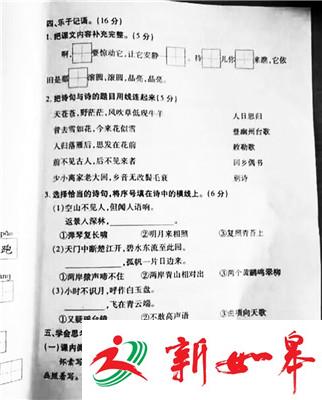 四、乐于记诵。(16分)
1.把课文内容补充完整。(5分)
啊,要惊动它,让它安静。待儿你来瞧,它依
旧是那滚圆,滚圆,晶亮,晶亮。
2.把诗句与诗的题目用线连起来(5分)
天苍苍,野茫茫,风吹草低现牛羊 人日思归
昔去雪如花,今来花似雪 登幽州台歌
人归落雁后,思发在花前 敕勒歌
前不见古人,后不见来者 回乡偶书
少小离家老大回,乡音无改鬓毛衰 别诗
3.选择恰当的诗句,将序号填在诗中的横线上。(6分)
(1)空山不见人,但闻人语响。
返景入深林,。
①弹琴复长啸 ②明月来相照 ③复照青苔上
(2)天门中断楚江开,碧水东流至此回。
,孤帆一片日边来。
①两岸猿声啼不住 ②两岸青山相对出 ③两个黄鹂鸣翠柳
(3)小时不识月,呼作白玉盘。
,飞在青云端。
①又疑瑶台镜 ②不敢高声语 ③曲项向天歌
五、学会思
(一)课内阅
怀素写
新如皋
pào
跑